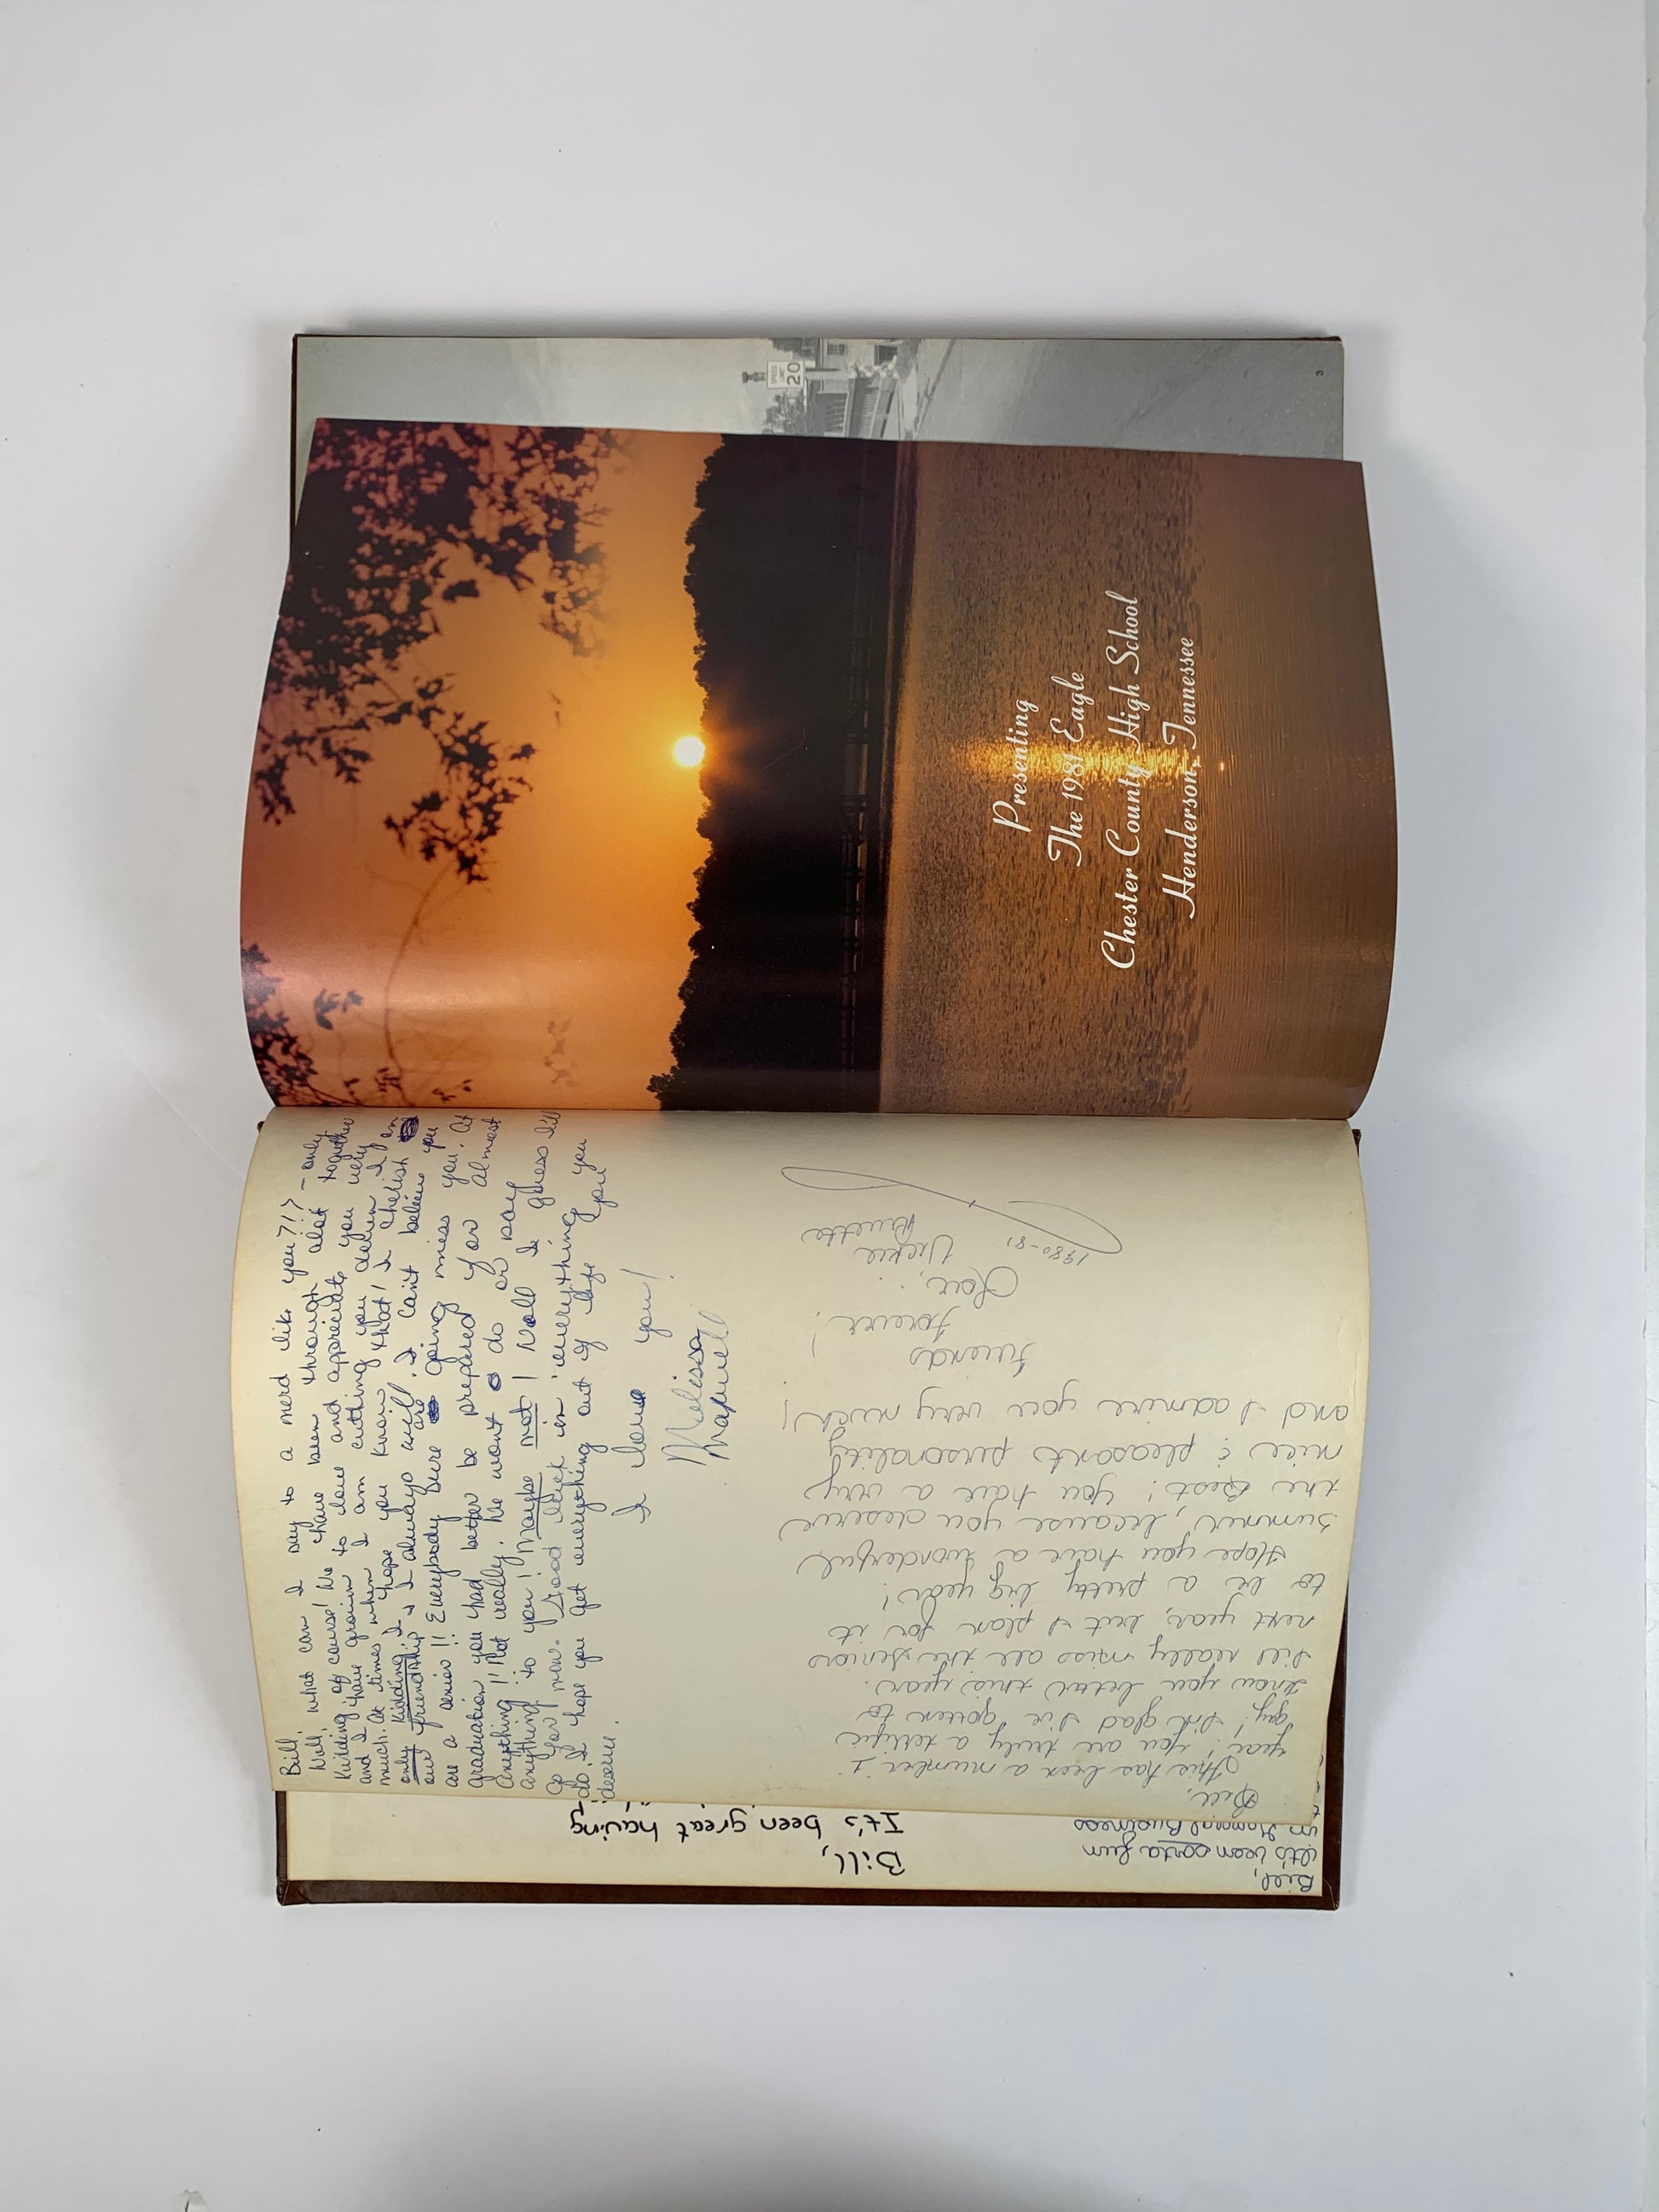 Bill,
Well, what can I say to a nerd like you?!? - only
Kidding of course! We have been through alot together
and I have grown to love and appreciate you very
much. At times when I am cutting you down I am
only kidding; I hope you know that! I cherish
our friendship & I always will. I can't believe you
are a senior!! Everybody are going miss you. At
graduation you had better be prepared for almost
anything!! Not really. We wont do or say
anything to you! Maybe not! Well I guess I'll
go for now. Good luck in everything you
do. I hope you get everything out of life you
deserve.
I love you!
Melissa
Bill,
This has been a number 1
year; you are truly a terrific
guy! I'm glad I've gotten to
know you better this year.
I'll really miss all the seniors
next year, but I plan for it
to be a pretty big year!
Hope you have a wonderful
summer, because you deserve
the Best! You have a very
nice & pleasant personality
and I admire you very much!
Friends
forever!
Love,
Vickie
1980-81
Bill,
It's been great having
Bill,
it's been sorta fun
in General Business
Presenting
The 1981 Eagle
Chester County High School
Henderson, Tennessee
SPEED
LIMIT
20
3